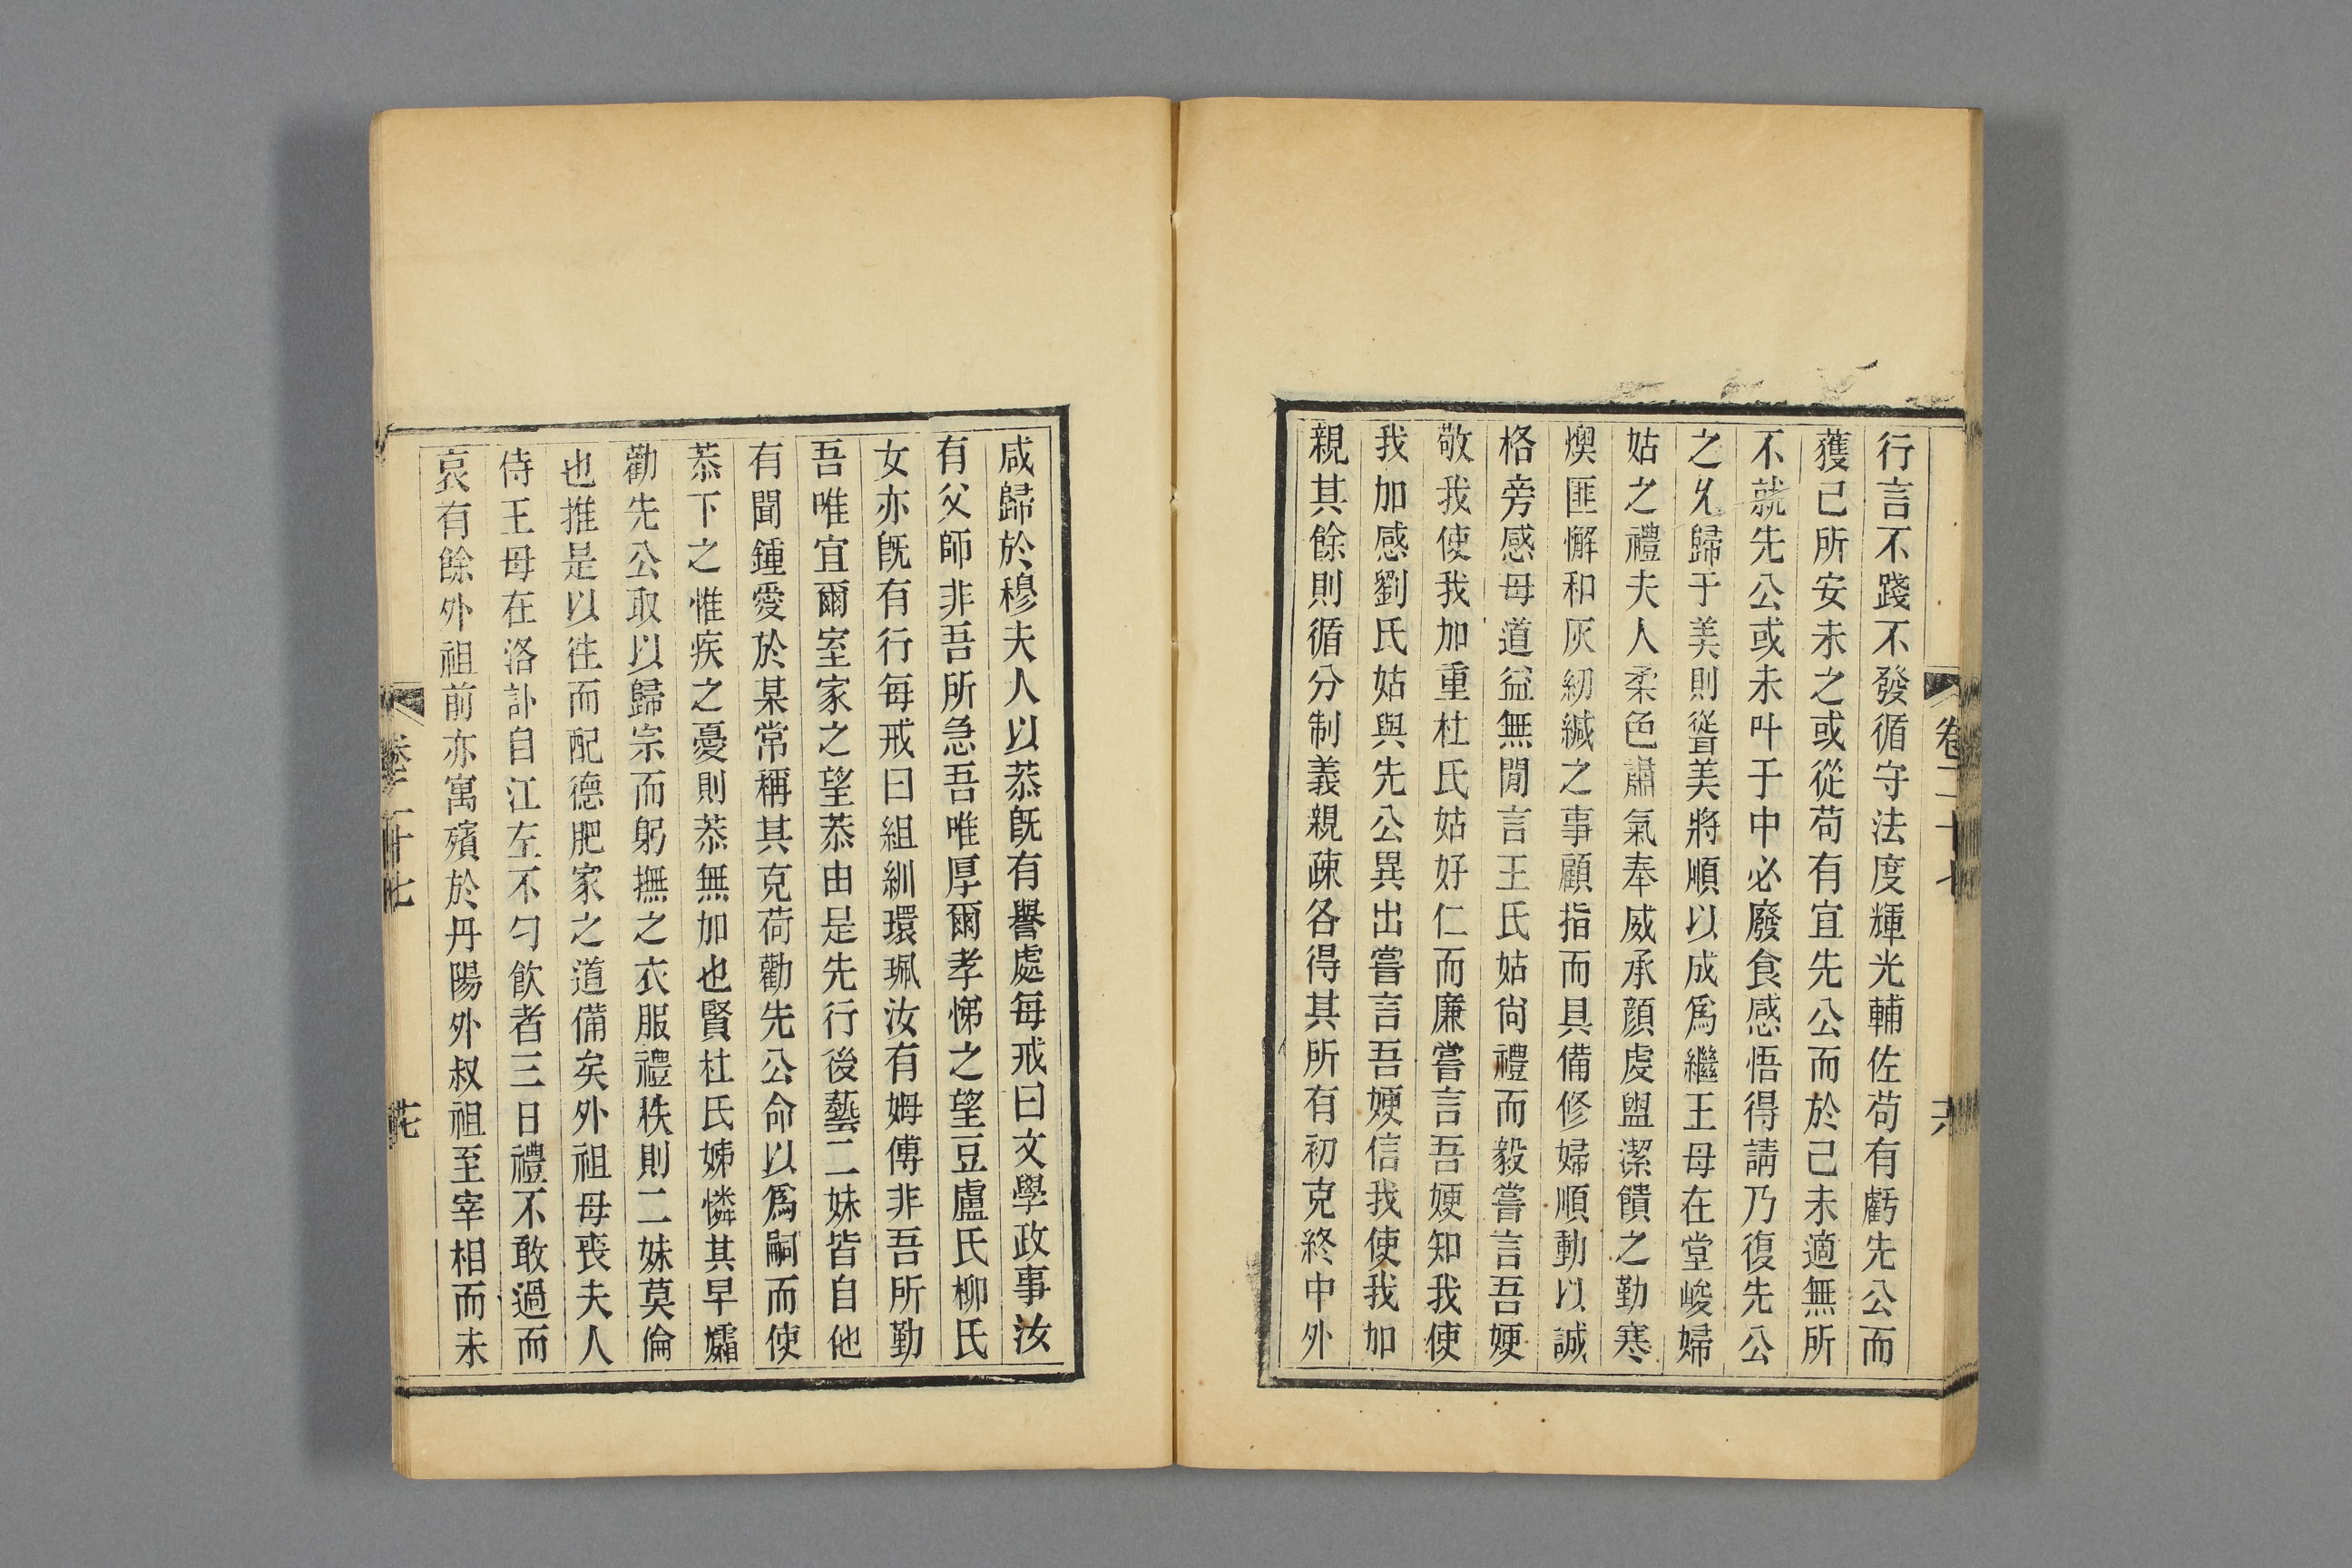 行言不踐不發循守法度輝光輔佐苟有虧先公而
獲已所安未之或從苟有宜先公而於己未適無所
不就先公或未叶于中必廢食感悟得請乃復先公
之 歸于美則 美將順以成爲繼王母在堂峻婦
姑之禮夫人柔色讌氣奉威承顏虔盥潔饋之勤寒
燠匪懈和灰紉緘之事顧指而具備修婦順動以誠
格旁感母道益無閒言王氏姑尚禮而毅嘗言吾㛐
敬我使我加重杜氏姑好仁而廉嘗言吾㛐知我使
我加感劉氏姑與先公異出嘗言吾㛐信我使我加
親其餘則循分制義親疎各得其所有初克終中外
卷二十七
咸歸於穆夫人以恭旣有譽處每戒曰文學政事汝
有父師非吾所急吾唯厚爾孝悌之望豆盧氏柳氏
女亦旣有行每戒曰組紃環珮汝有姆傅非吾所勤
吾唯宜爾室家之望恭由是先行後藝二妹皆自他
有聞鍾愛於某常稱其克荷勸先公命以爲嗣而使
恭下之惟疾之憂則恭無加也賢杜氏姊憐其早孀
勸先公取以歸宗而躬撫之衣服禮秩則二妹莫倫
也推是以往而配德肥家之道備矣外祖母喪夫人
侍王母在洛訃自江左不勺飲者三日禮不敢過而
哀有餘外祖前亦寓殯於丹陽外叔祖至宰相而未
卷二十七